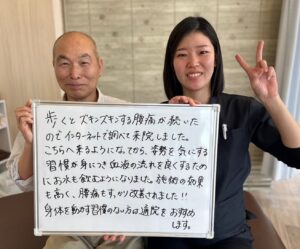 歩くとズキンズキンする腰痛が続いた
のでインターネットで調べて来院しました。
こちらへ来るようになってから、姿勢を気にする
習慣が身につき血液の流れを良くするため
にお水を飲むようになりました。施術の効果
も高く、腰痛もすっかり改善されました!!
身体を動かす習慣のない方は通院をお勧め
します。